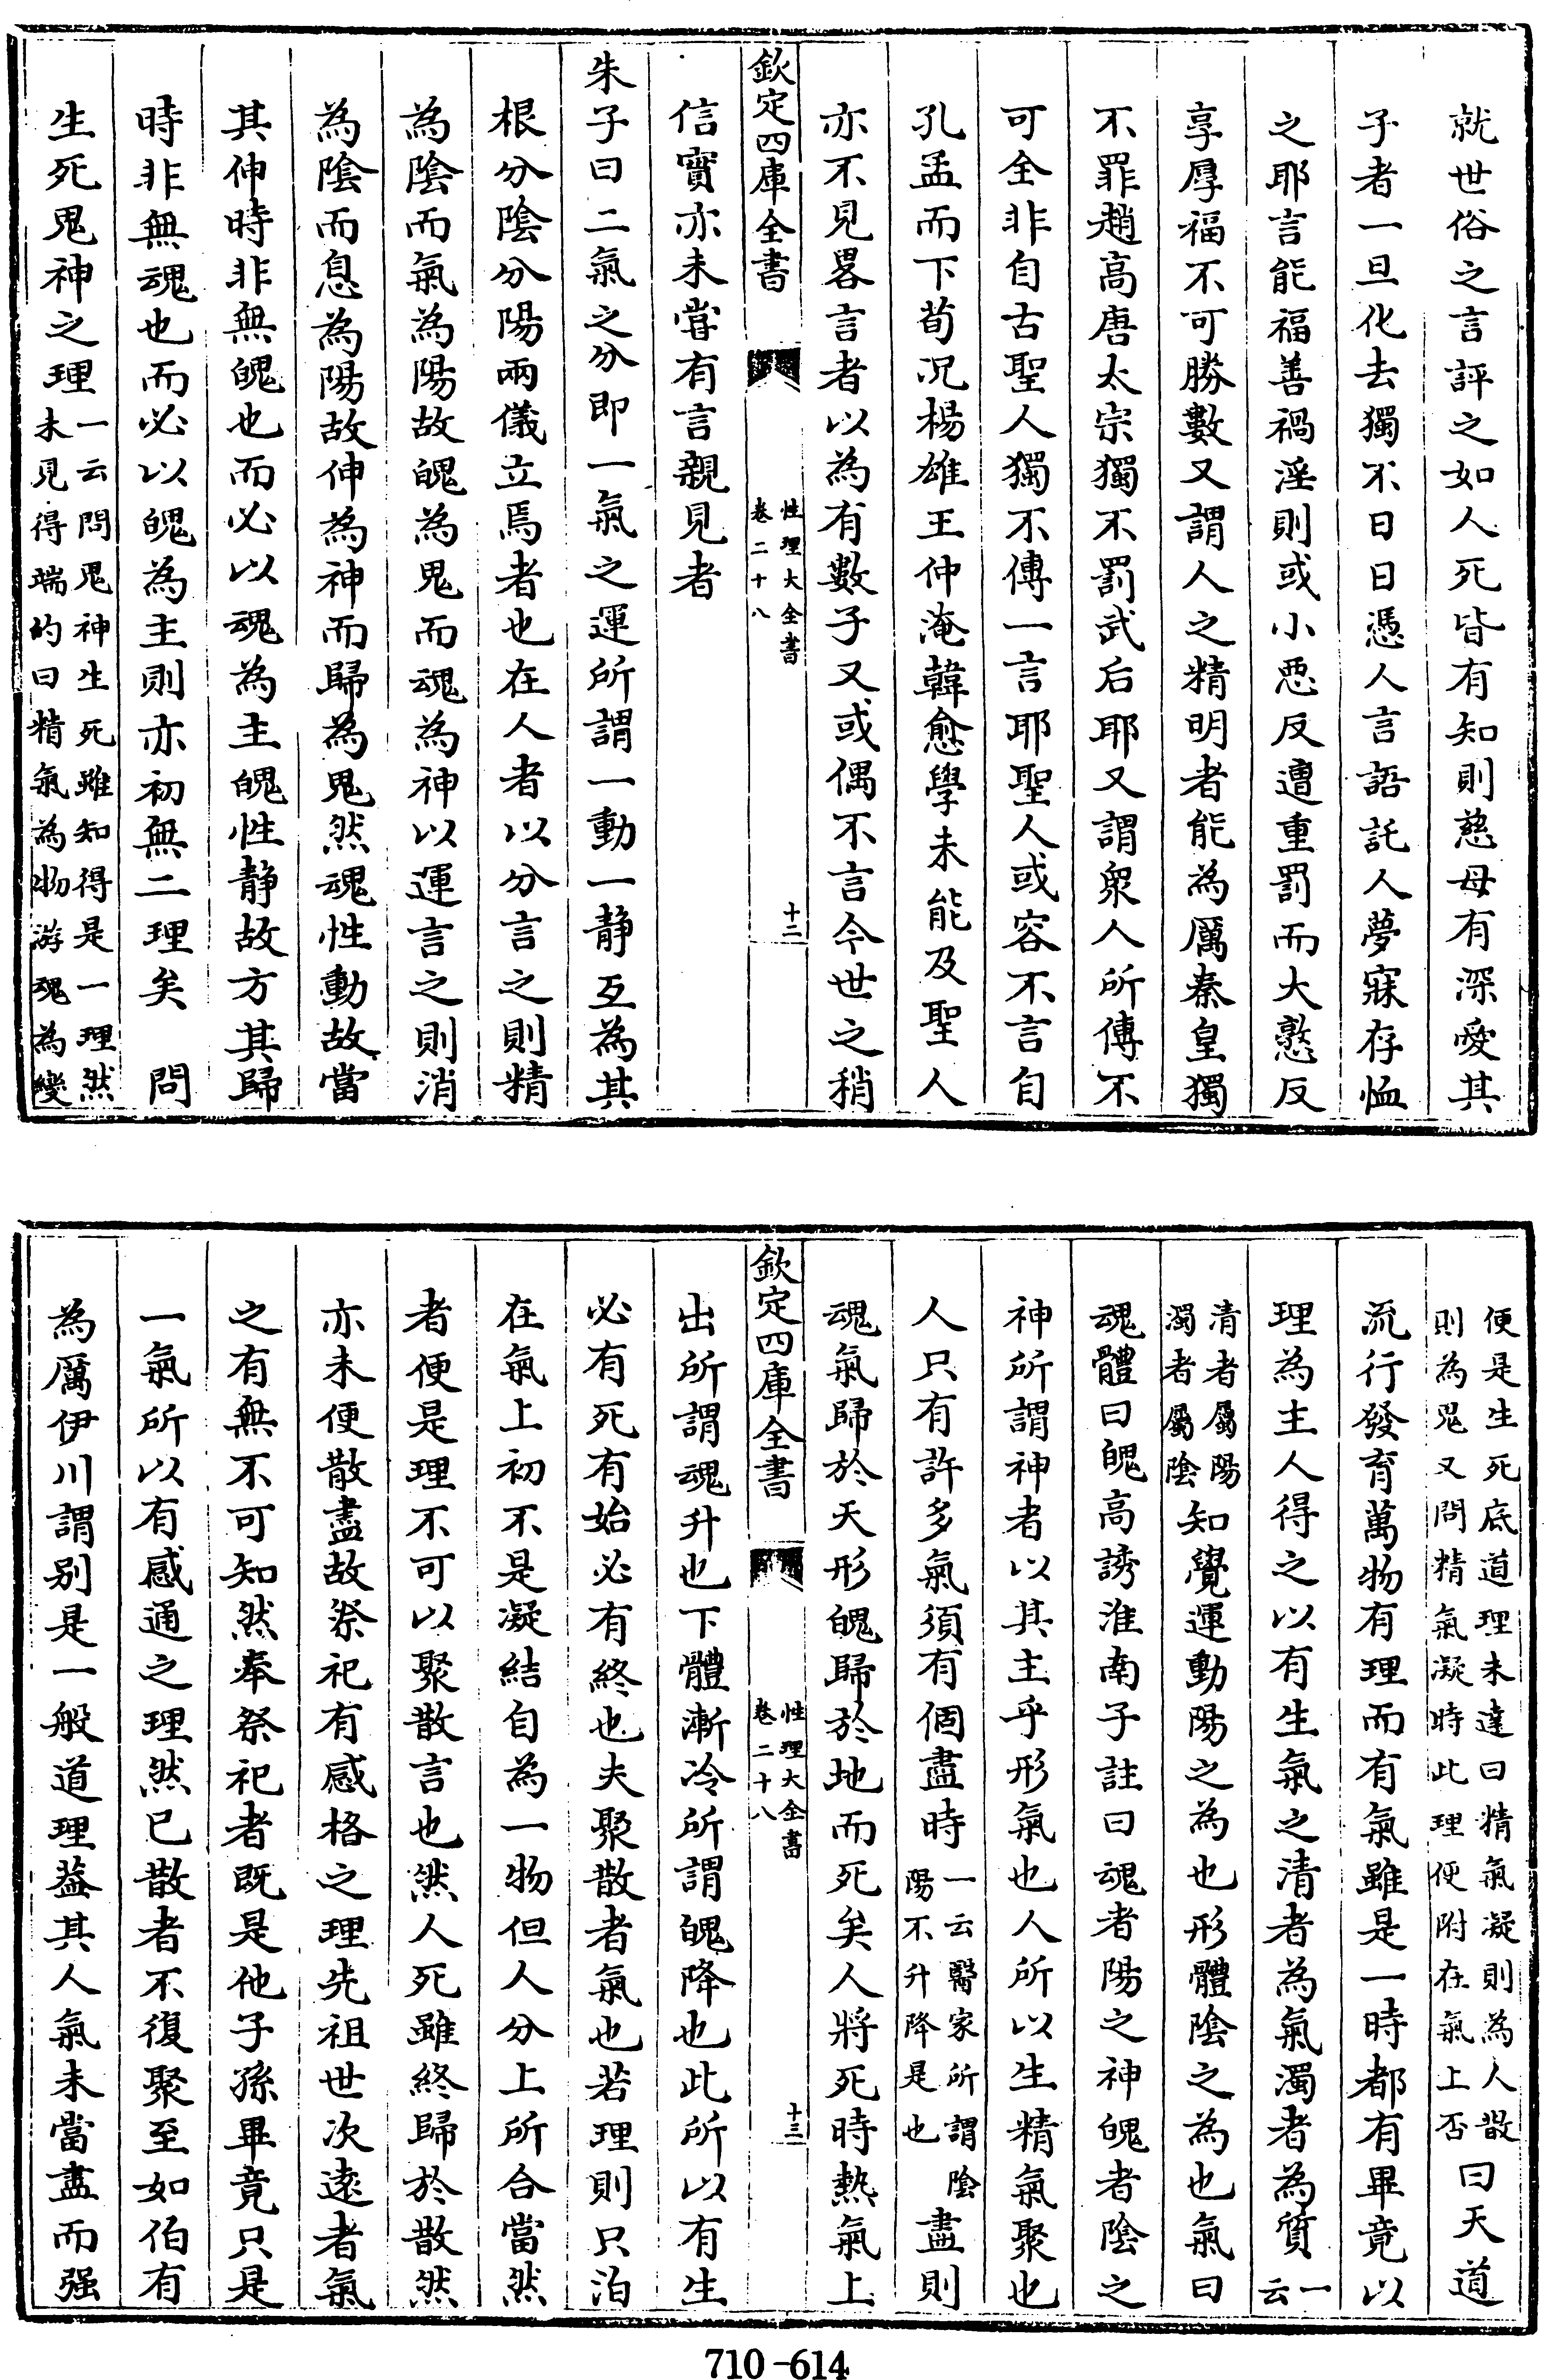 就世俗之言評之如人死皆有知則慈母有深愛其
子者一旦化去獨不日日憑人言語託人夢寐存恤
之耶言能福善禍淫則或小惡反遭重罰而大憝反
享厚福不可勝數又謂人之精明者能為厲秦皇獨
不罪趙高唐太宗獨不罰武后耶又謂衆人所傳不
可全非自古聖人獨不傳一言耶聖人或容不言自
孔孟而下荀况楊雄王仲淹韓愈學未能及聖人
亦不見畧言者以為有數子又或偶不言今世之稍
欽定四庫全書
性理大全書
卷二十八
十二
信實亦未嘗有言親見者
朱子曰二氣之分即一氣之運所謂一動一静互為其
根分陰分陽兩儀立焉者也在人者以分言之則精
為陰而氣為陽故魄為鬼而魂為神以運言之則消
為陰而息為陽故伸為神而歸為鬼然魂性動故當
其伸時非無魄也而必以魂為主魄性静故方其歸
時非無魂也而必以魄為主則亦初無二理矣　問
生死鬼神之理一云問鬼神生死雖知得是一理然
未見得端的曰精氣為物游魂為變
便是生死底道理未達曰精氣凝則為人散
則為鬼又問精氣凝時此理便附在氣上否曰天道
流行發育萬物有理而有氣雖是一時都有畢竟以
理為主人得之以有生氣之清者為氣濁者為質一
云
清者屬陽
濁者屬陰知覺運動陽之為也形體陰之為也氣曰
魂體曰魄高誘淮南子註曰魂者陽之神魄者陰之
神所謂神者以其主乎形氣也人所以生精氣聚也
人只有許多氣須有個盡時一云醫家所謂陰
陽不升降是也盡則
魂氣歸於天形魄歸於地而死矣人將死時熱氣上
欽定四庫全書
性理大全書
卷二十八
十三
出所謂魂升也下體漸冷所謂魄降也此所以有生
必有死有始必有終也夫聚散者氣也若理則只泊
在氣上初不是凝結自為一物但人分上所合當然
者便是理不可以聚散言也然人死雖終歸於散然
亦未便散盡故祭祀有感格之理先祖世次遠者氣
之有無不可知然奉祭祀者既是他子孫畢竟只是
一氣所以有感通之理然已散者不復聚至如伯有
為厲伊川謂别是一般道理葢其人氣未當盡而强
710-614